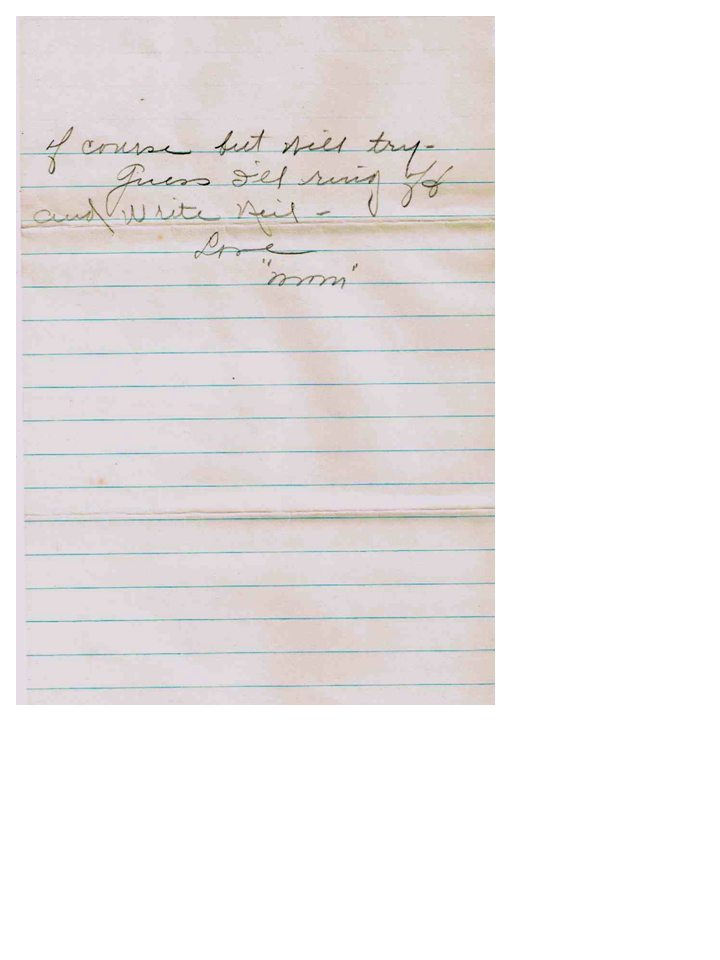 of course but will try-
Guess I'll ring off
and Write Neil -
Love
"mom"